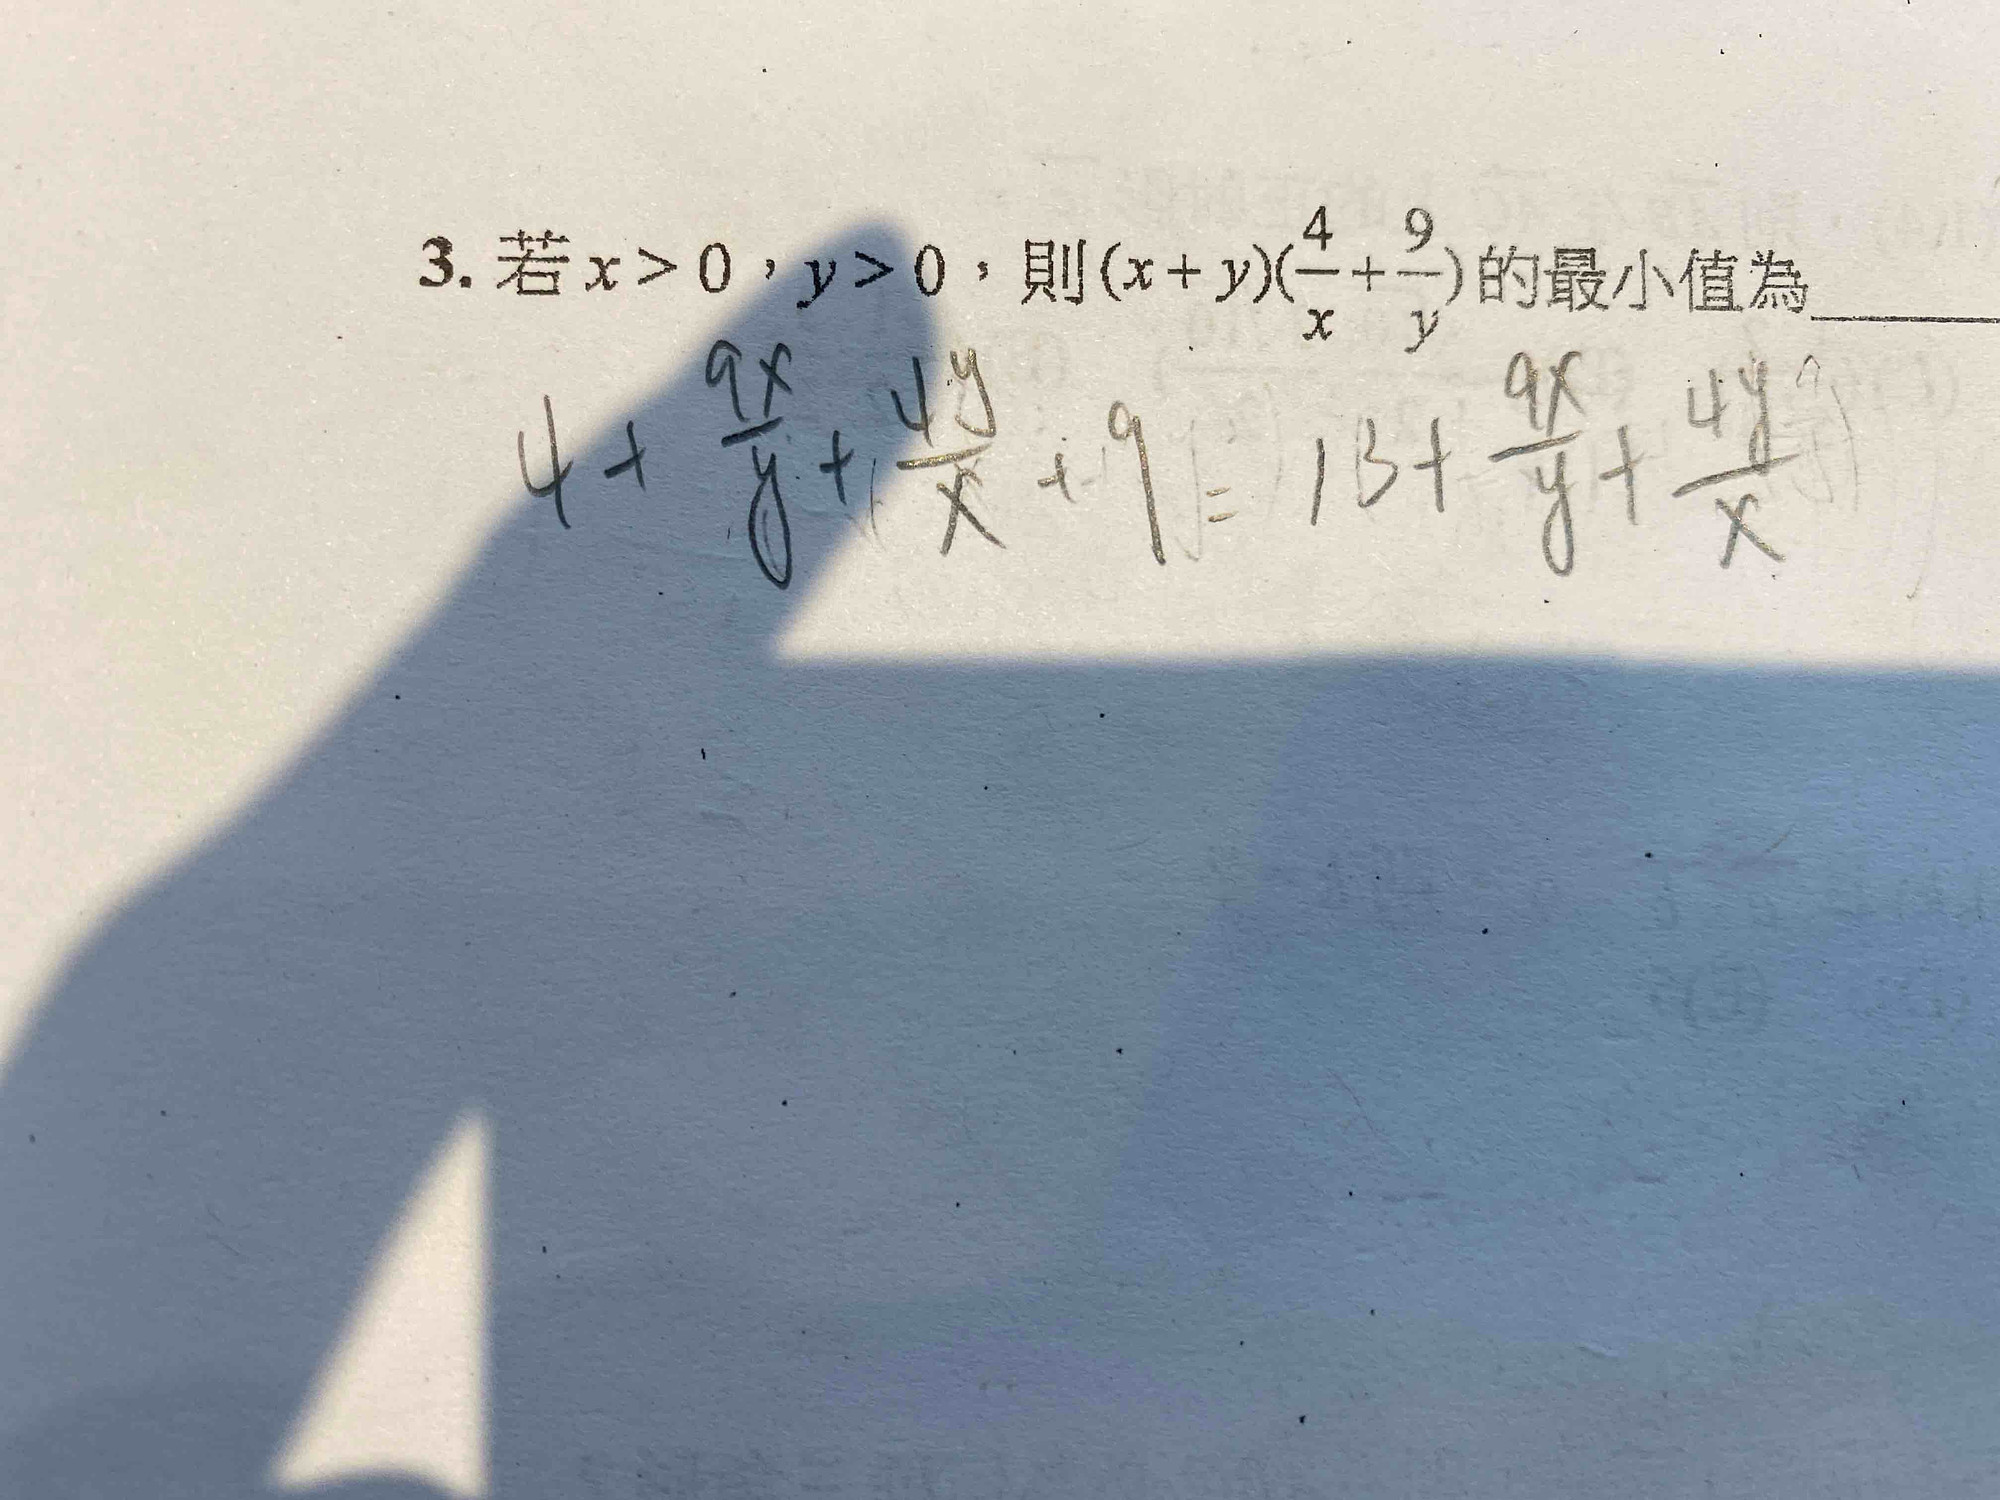 3. 若 x > 0，y > 0，則 (x + y)(4/x + 9/y) 的最小值為______
4 + 9x/y + 4y/x + 9 = 13 + 9x/y + 4y/x